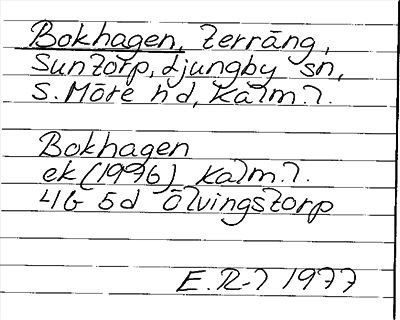 Bokhagen, terräng,
Suntorp, Ljungby sn,
S. Möre hd, Kalm. l.
Bokhagen
ek (1996) Kalm. l.
4G 5d Ölvingstorp
E.R-l 1977